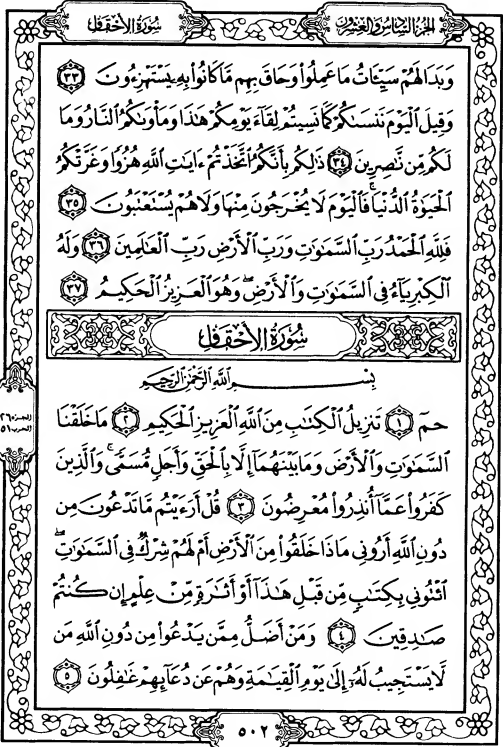 سُورَةُ الأَحْقَافِ
الجُزْءُ السَّادِسُ وَالعِشْرُونَ
وَبَدَا لَهُمْ سَيِّئَاتُ مَا عَمِلُوا۟ وَحَاقَ بِهِم مَّا كَانُوا۟ بِهِۦ يَسْتَهْزِءُونَ ٣٣
وَقِيلَ ٱلْيَوْمَ نَنسَىٰكُمْ كَمَا نَسِيتُمْ لِقَآءَ يَوْمِكُمْ هَٰذَا وَمَأْوَىٰكُمُ ٱلنَّارُ وَمَا
لَكُم مِّن نَّٰصِرِينَ ٣٤ ذَٰلِكُم بِأَنَّكُمُ ٱتَّخَذْتُمْ ءَايَٰتِ ٱللَّهِ هُزُوًا وَغَرَّتْكُمُ
ٱلْحَيَوٰةُ ٱلدُّنْيَا ۚ فَٱلْيَوْمَ لَا يُخْرَجُونَ مِنْهَا وَلَا هُمْ يُسْتَعْتَبُونَ ٣٥
فَلِلَّهِ ٱلْحَمْدُ رَبِّ ٱلسَّمَٰوَٰتِ وَرَبِّ ٱلْأَرْضِ رَبِّ ٱلْعَٰلَمِينَ ٣٦ وَلَهُ
ٱلْكِبْرِيَآءُ فِى ٱلسَّمَٰوَٰتِ وَٱلْأَرْضِ ۖ وَهُوَ ٱلْعَزِيزُ ٱلْحَكِيمُ ٣٧
سُورَةُ الأَحْقَافِ
بِسْمِ ٱللَّهِ ٱلرَّحْمَٰنِ ٱلرَّحِيمِ
حمٓ ١ تَنزِيلُ ٱلْكِتَٰبِ مِنَ ٱللَّهِ ٱلْعَزِيزِ ٱلْحَكِيمِ ٢ مَا خَلَقْنَا
ٱلسَّمَٰوَٰتِ وَٱلْأَرْضَ وَمَا بَيْنَهُمَآ إِلَّا بِٱلْحَقِّ وَأَجَلٍ مُّسَمًّى ۚ وَٱلَّذِينَ
كَفَرُوا۟ عَمَّآ أُنذِرُوا۟ مُعْرِضُونَ ٣ قُلْ أَرَءَيْتُم مَّا تَدْعُونَ مِن
دُونِ ٱللَّهِ أَرُونِى مَاذَا خَلَقُوا۟ مِنَ ٱلْأَرْضِ أَمْ لَهُمْ شِرْكٌ فِى ٱلسَّمَٰوَٰتِ ۖ
ٱئْتُونِى بِكِتَٰبٍ مِّن قَبْلِ هَٰذَآ أَوْ أَثَٰرَةٍ مِّنْ عِلْمٍ إِن كُنتُمْ
صَٰدِقِينَ ٤ وَمَنْ أَضَلُّ مِمَّن يَدْعُوا۟ مِن دُونِ ٱللَّهِ مَن
لَّا يَسْتَجِيبُ لَهُۥٓ إِلَىٰ يَوْمِ ٱلْقِيَٰمَةِ وَهُمْ عَن دُعَآئِهِمْ غَٰفِلُونَ ٥
الجزء ٢٦
الحزب ٥١
٥٠٢